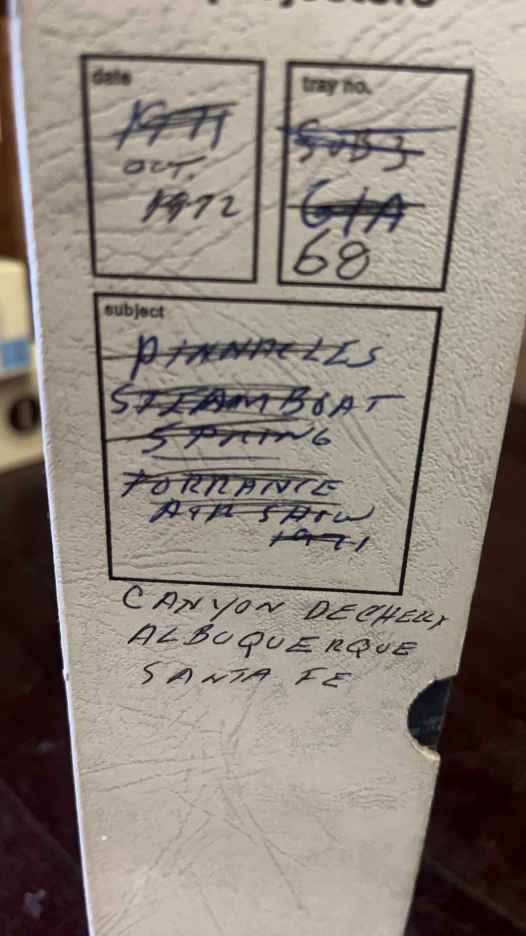 date
1971
OCT.
1972
tray no.
61A
68
subject
PINNACLES
STEAMBOAT
SPRING
TORRANCE
AIR SHOW
1971
CANYON DECHELLY
ALBUQUERQUE
SANTA FE